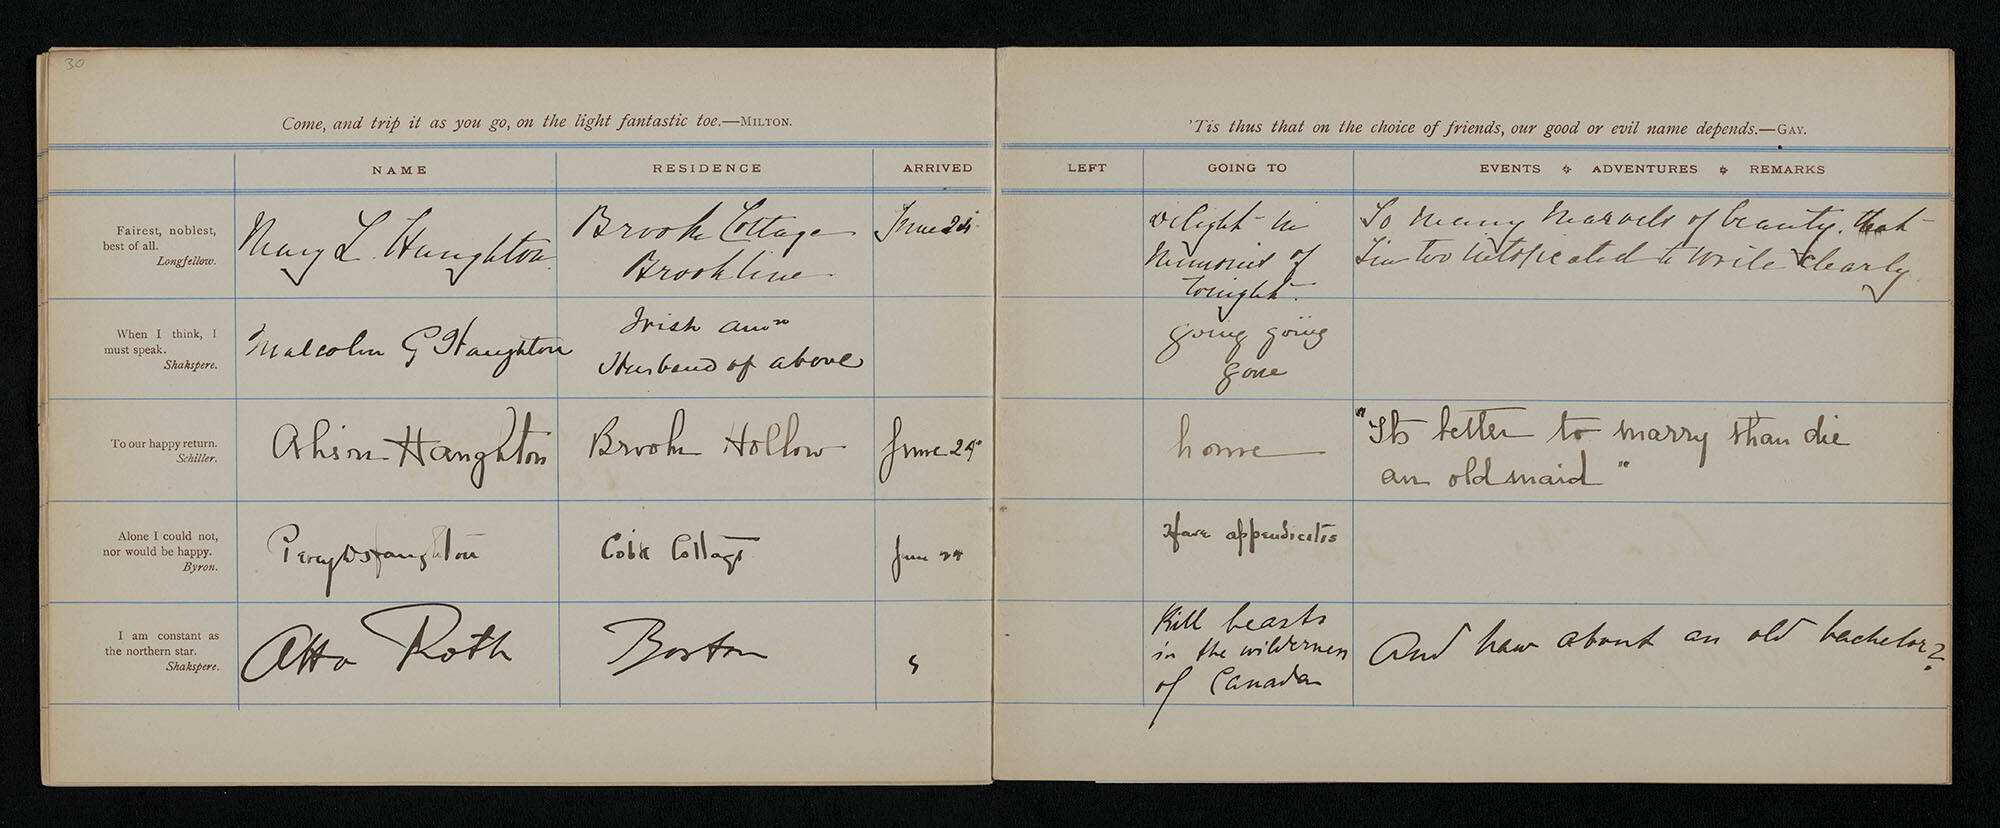 30
Come, and trip it as you go, on the light fantastic toe.—MILTON.
'Tis thus that on the choice of friends, our good or evil name depends.—GAY.
NAME
RESIDENCE
ARRIVED
LEFT
GOING TO
EVENTS ADVENTURES REMARKS
Fairest, noblest,
best of all.
Longfellow.
Mary L. Haughton
Brook Cottage
Brookline
June 24
delight in
memories of
tonight.
So many marvels of beauty, that
I'm too intoxicated to write clearly
When I think, I
must speak.
Shakspere.
Malcolm G Haughton
Irish
Husband of above
going going
gone
To our happy return.
Schiller.
Alison Haughton
Brook Hollow
June 24
home
"Its better to marry than die
an old maid"
Alone I could not,
nor would be happy.
Byron.
Percy D Haughton
Cottage
June 24
Have appendicitis
I am constant as
the northern star.
Shakspere.
Otto Roth
Boston
"
Kill beasts
in the wilderness
of Canada
And how about an old bachelor?